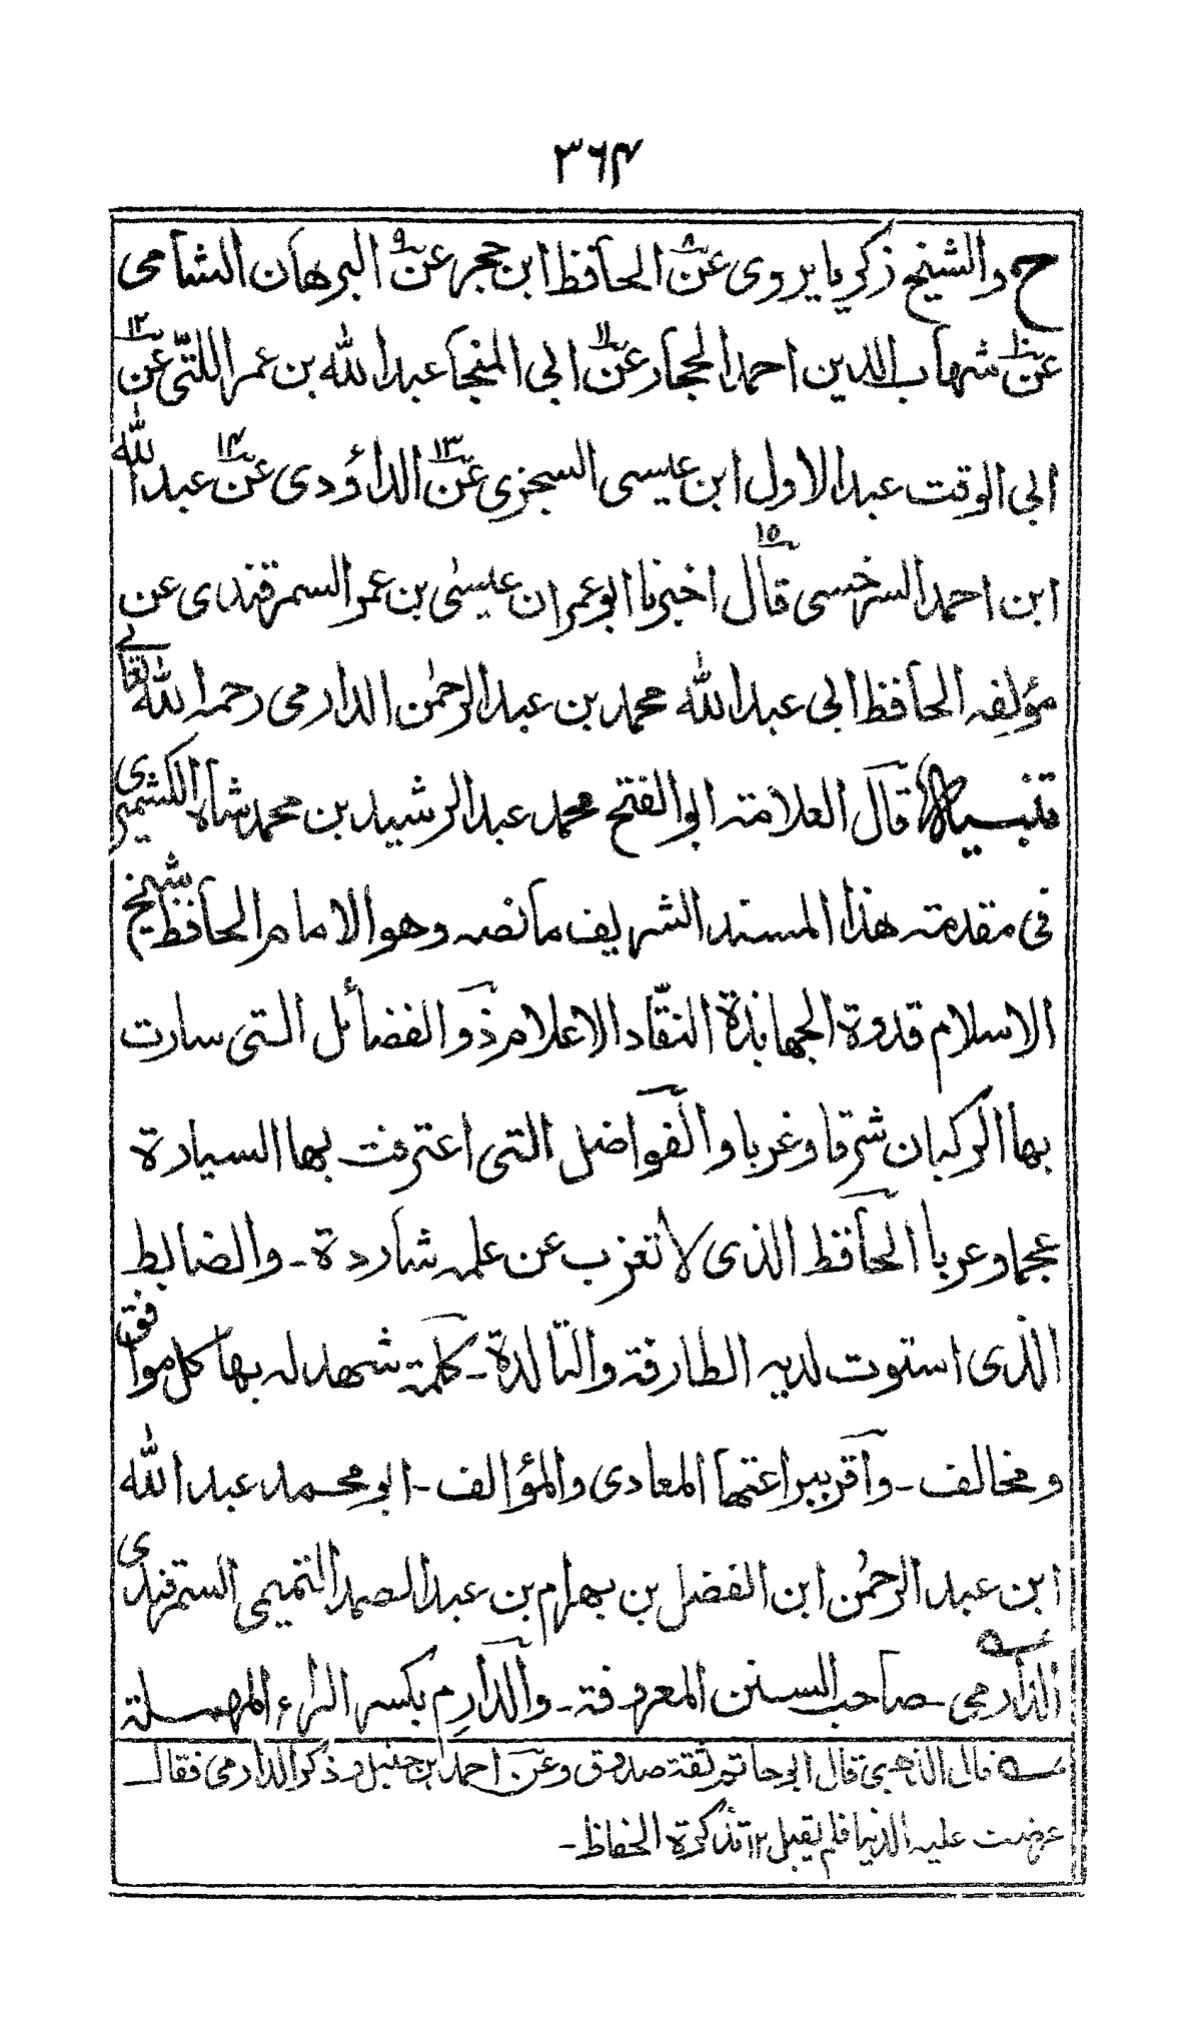 ۳۶۴
ح والشيخ زكريا يروى عن۸ الحافظ ابن حجر عن۹ البرهان الشامى
عن۱۰ شهاب الدين احمد الحجار عن۱۱ ابى المنجا عبد الله بن عمر اللتّى عن۱۲
ابى الوقت عبد الاول ابن عيسى السجزى عن۱۳ الداؤدى عن۱۴ عبد الله
ابن احمد السرخسى قال۱۵ اخبرنا ابو عمران عيسٰى بن عمر السمرقندى عن
مؤلفه الحافظ ابى عبد الله محمد بن عبد الرحمٰن الدارمى رحمه الله تعالى
تنبيه) قال العلامة ابو الفتح محمد عبد الرشيد بن محمد شاه الكشميرى
فى مقدمة هذا المسند الشريف مانصه وهو الامام الحافظ شيخ
الاسلام قدوة الجهابذة النقّاد الاعلام ذو الفضائل التى سارت
بها الركبان شرقا وغربا والفواضل التى اعترفت بها السيادة
عجما وعربا الحافظ الذى لا تعزب عن علمه شاردة ـ والضابط
الذى استوت لديه الطارفة والتالدة ـ كلمة شهد له بها كل موافق
ومخالف ـ واقر ببراعتها المعادى والمؤالف ـ ابو محمد عبد الله
ابن عبد الرحمٰن ابن الفضل بن بهرام بن عبد الصمد التميمى السمرقندى
الدارمى ـ صاحب السنن المعروفة ـ والدارِم بكسر الراء المهملة
ه قال الذهبى قال ابو حاتم ثقة صدوق وعن احمد بن حنبل وذكر الدارمى فقال
عرضت عليه الدنيا فلم يقبل ۱۲ تذكرة الحفاظ ـ